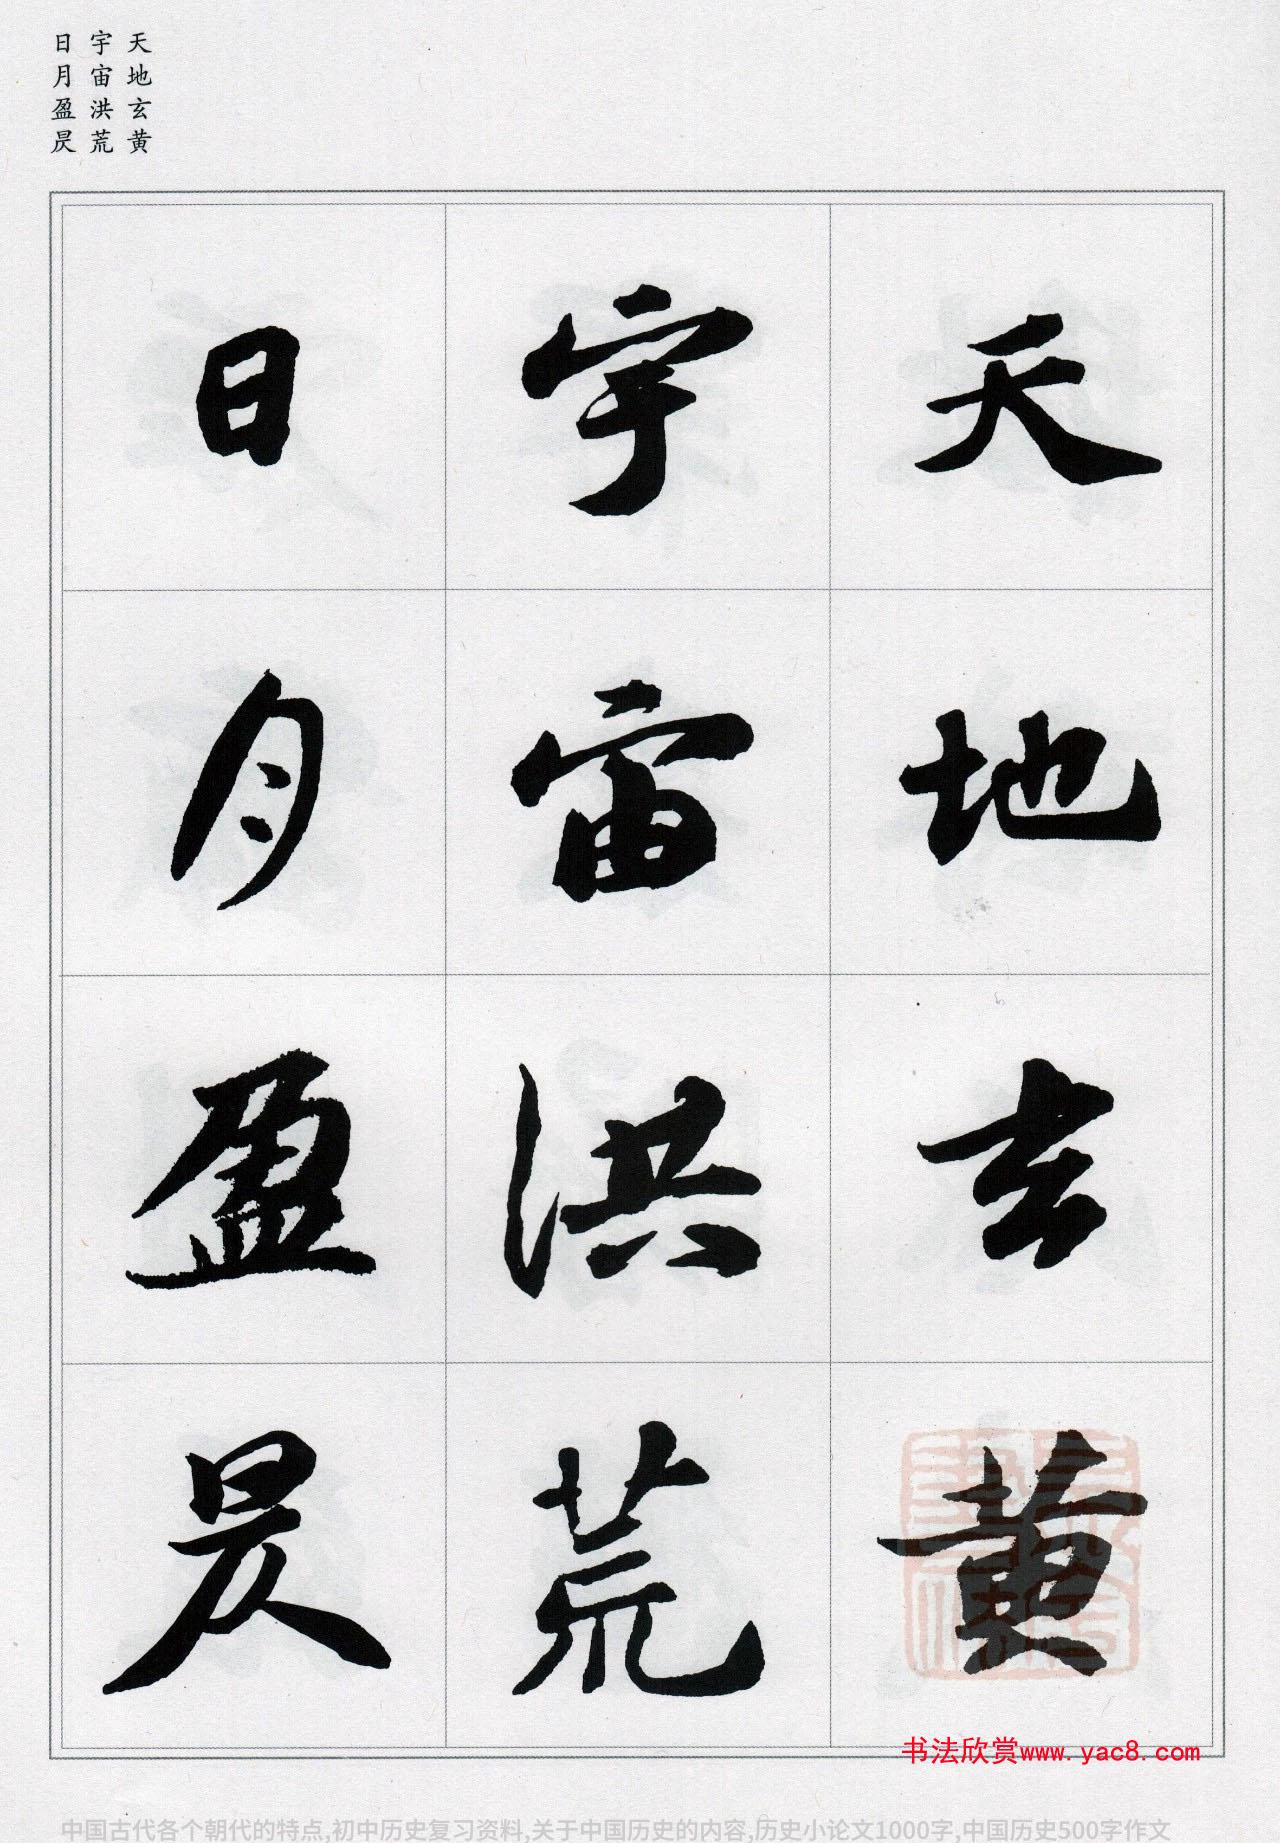 天地玄黄
宇宙洪荒
日月盈昃
天地玄黄
宇宙洪荒
日月盈昃
书法欣赏www.yac8.com
中国古代各个朝代的特点,初中历史复习资料,关于中国历史的内容,历史小论文1000字,中国历史500字作文